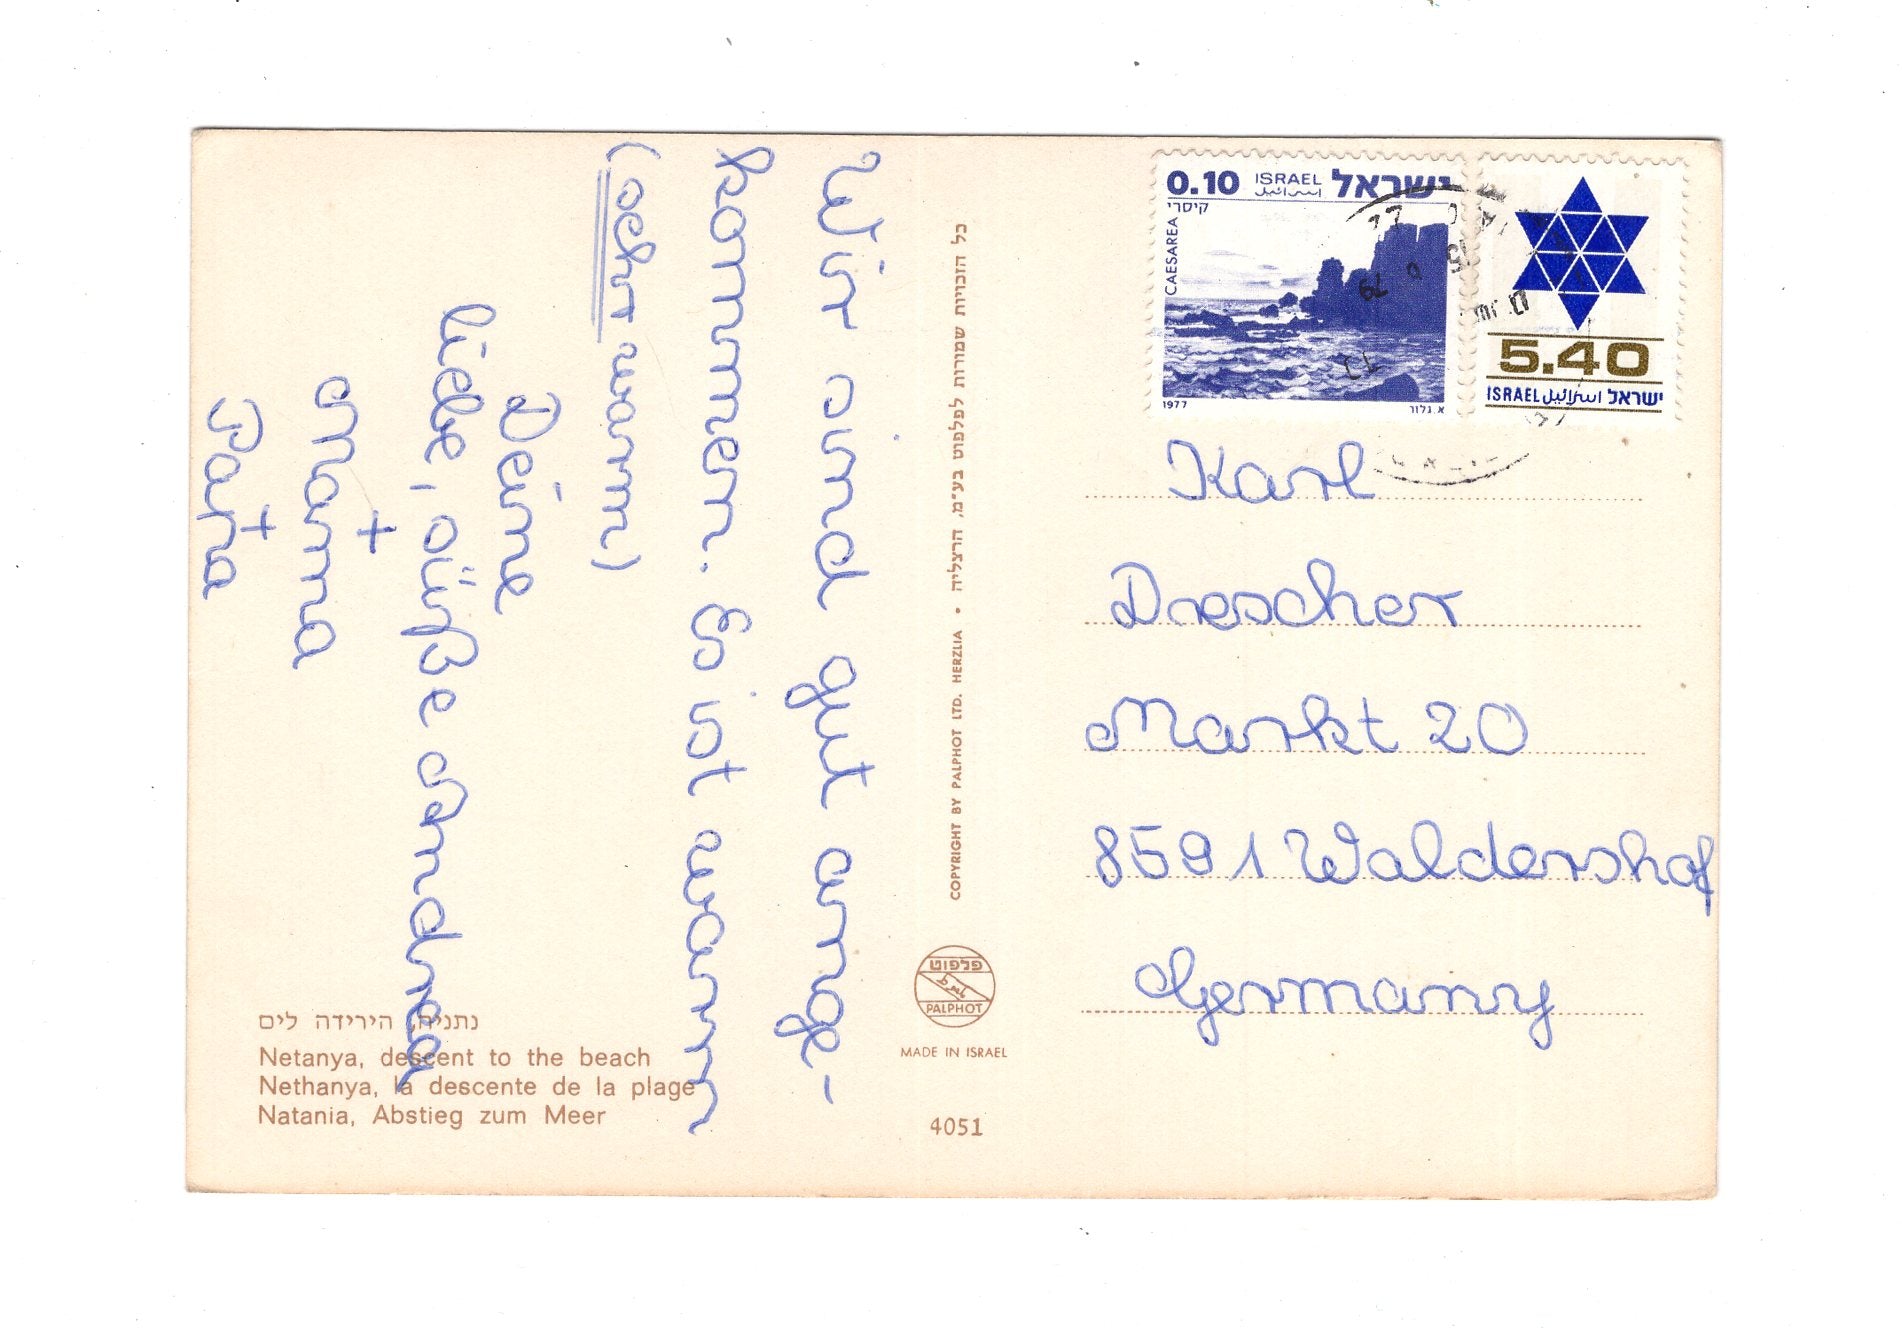 Wir sind gut ange-
kommen. Es ist warm
(echt warm)
Deine
liebe, süße Andrea
Mama
+
Papa
+
כל הזכויות שמורות לפלפוט בע"מ, הרצליה • COPYRIGHT BY PALPHOT LTD. HERZLIA
פלפוט
PALPHOT
MADE IN ISRAEL
4051
נתניה, הירידה לים
Netanya, descent to the beach
Nethanya, la descente de la plage
Natania, Abstieg zum Meer
0.10 ISRAEL اسرائيل ישראל
קיסרי
CAESAREA
1977
א. גלזר
5.40
ISRAEL اسرائيل ישראל
79
Karl
Drescher
Markt 20
8591 Waldershof
Germany